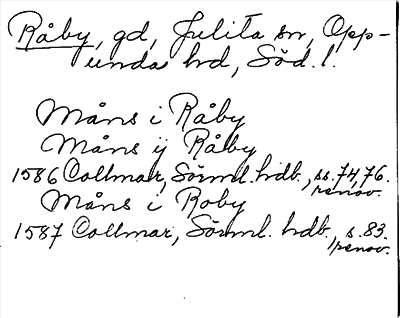 Råby, gd, Julita sn, Opp-
unda hd, Söd. l.
Måns i Råby
Måns ij Råby
1586 Collmar, Sörml. hdb., ss. 74, 76.
renov.
Måns i Roby
1587 Collmar, Sörml. hdb., s. 83.
renov.